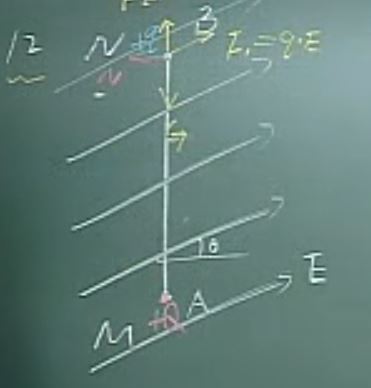 12
N
+q
B
F₁=q·E
N
θ
E
M
+Q
A